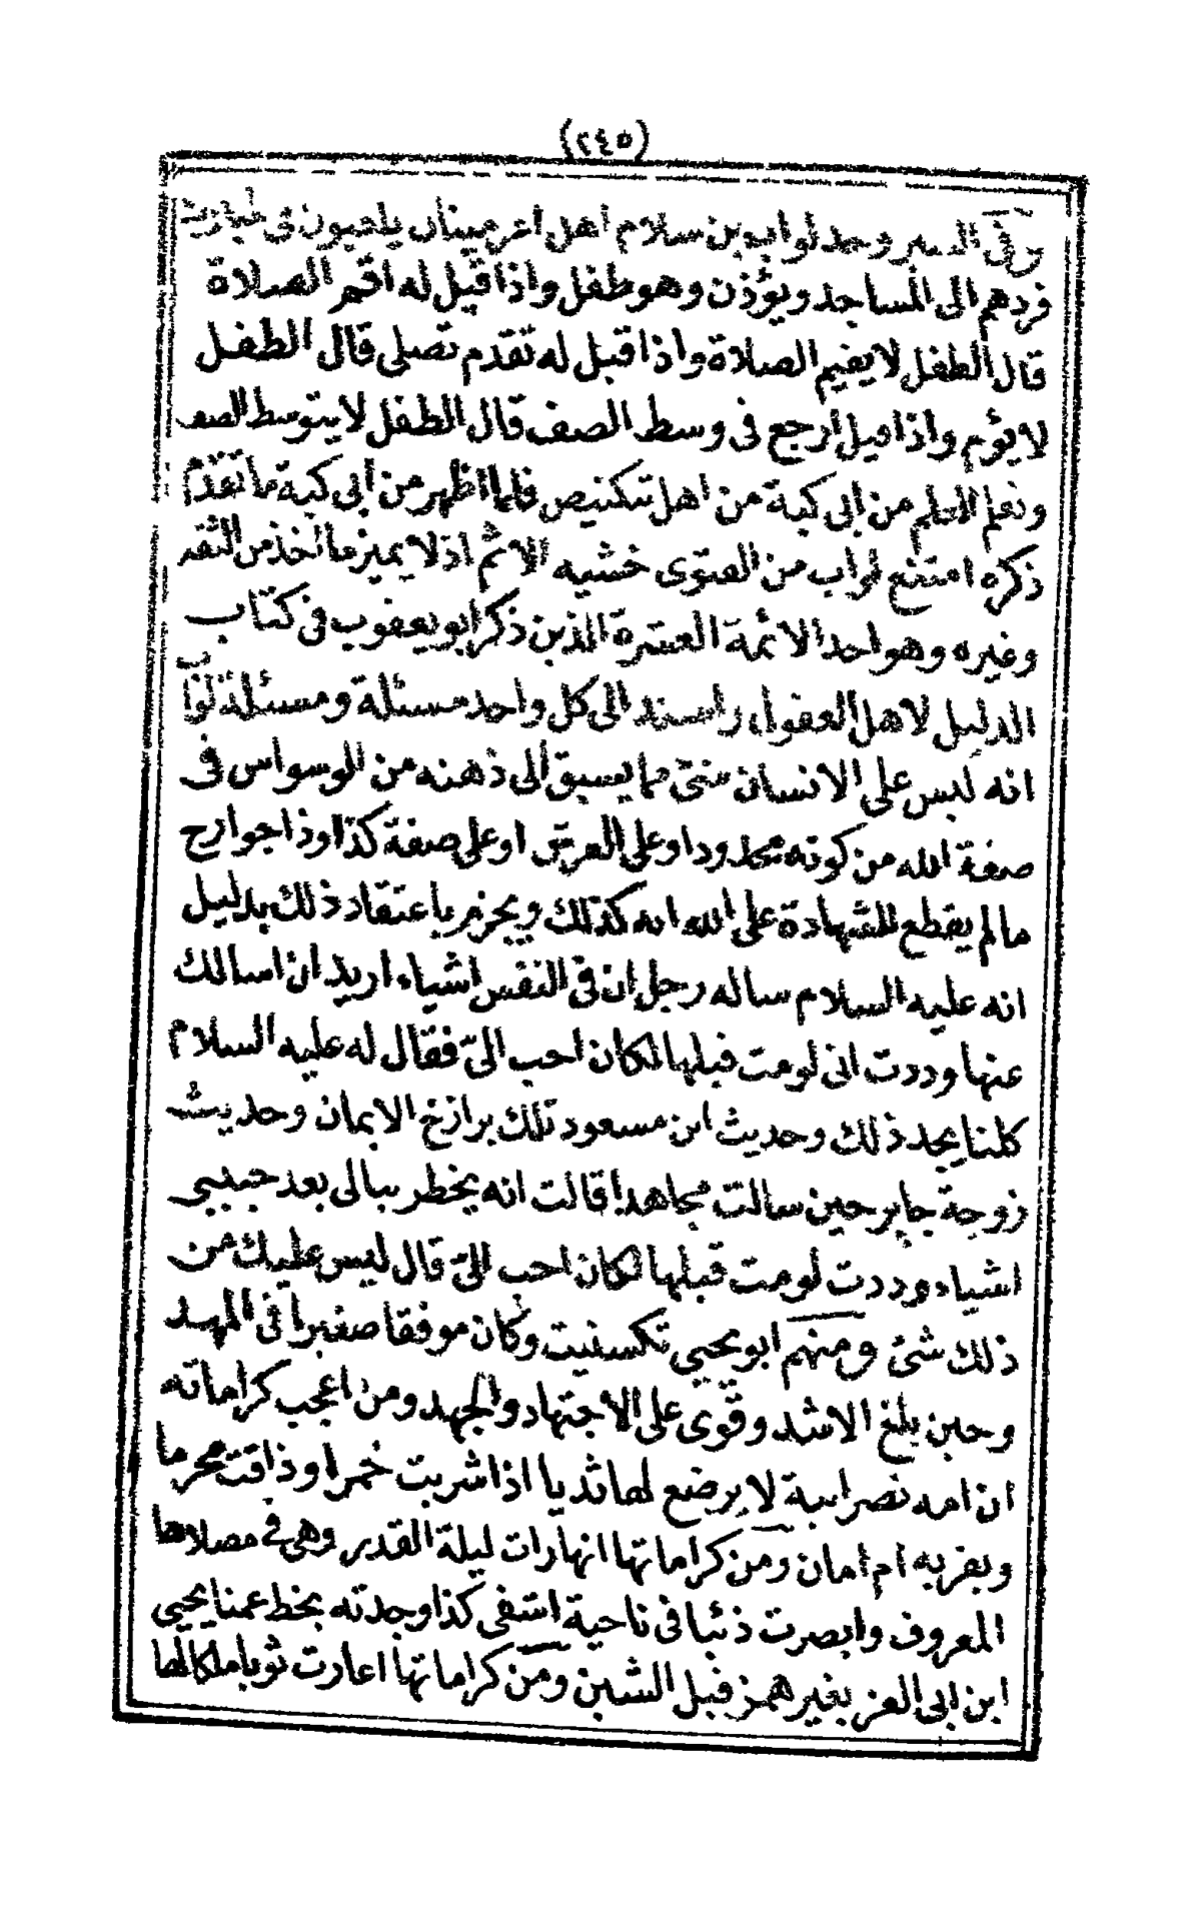 (٢٤٥)
وفي السير وجد لواب بن سلام اهل اغرميناں يلعبون في
فردهم الى المساجد ويؤذن وهو طفل واذا قيل له اقم الصلاة
قال الطفل لا يقيم الصلاة واذا قيل له تقدم تصلى قال الطفل
لا يؤم واذا قيل ارجع فى وسط الصف قال الطفل لا يتوسط الصف
وتعلم العلم من ابى كبة من اهل تتكنيص فلما اظهر من ابى كبة ما تقدم
ذكره امتنع لواب من الفتوى خشيه الاثم اذ لا يميز ما اخذ من الثقة
وغيره وهو احد الائمة العشرة الذين ذكر ابو يعقوب فى كتاب
الدليل لاهل العقول واسند الى كل واحد مسئلة ومسئلة لواب
انه ليس على الانسان شئ مما يسبق الى ذهنه من الوسواس فى
صفة الله من كونه محدودا او على العرش او على صفة كذا وذا جوارح
مالم يقطع للشهادة على الله انه كذلك ويجزم باعتقاد ذلك بدليل
انه عليه السلام ساله رجل ان فى النفس اشياء اريد ان اسالك
عنها وددت انى لو مت قبلها لكان احب الىّ فقال له عليه السلام
كلنا يجد ذلك وحديث ابن مسعود تلك برازخ الايمان وحديث
زوجة جابر حين سالت مجاهدا قالت انه يخطر ببالى بعد حبيبى
اشياء وددت لو مت قبلها لكان احب الىّ قال ليس عليك من
ذلك شئ ومنهم ابو يحيى تكسنيت وكان موفقا صغيرا فى المهد
وحين بلغ الاشد وقوى على الاجتهاد والجهد ومن اعجب كراماته
ان امه نصرانية لا يرضع لها ثديا اذا شربت خمرا وذاقت محرما
وبقربه ام امان ومن كراماتها انها رات ليلة القدر وهى فى مصلاها
المعروف وابصرت ذئبا فى ناحية اشفى كذا وجدته بخط عمنا يحيى
ابن ابى العز بغير همز قبل الشين ومن كراماتها اعارت ثوبا ملكا لها